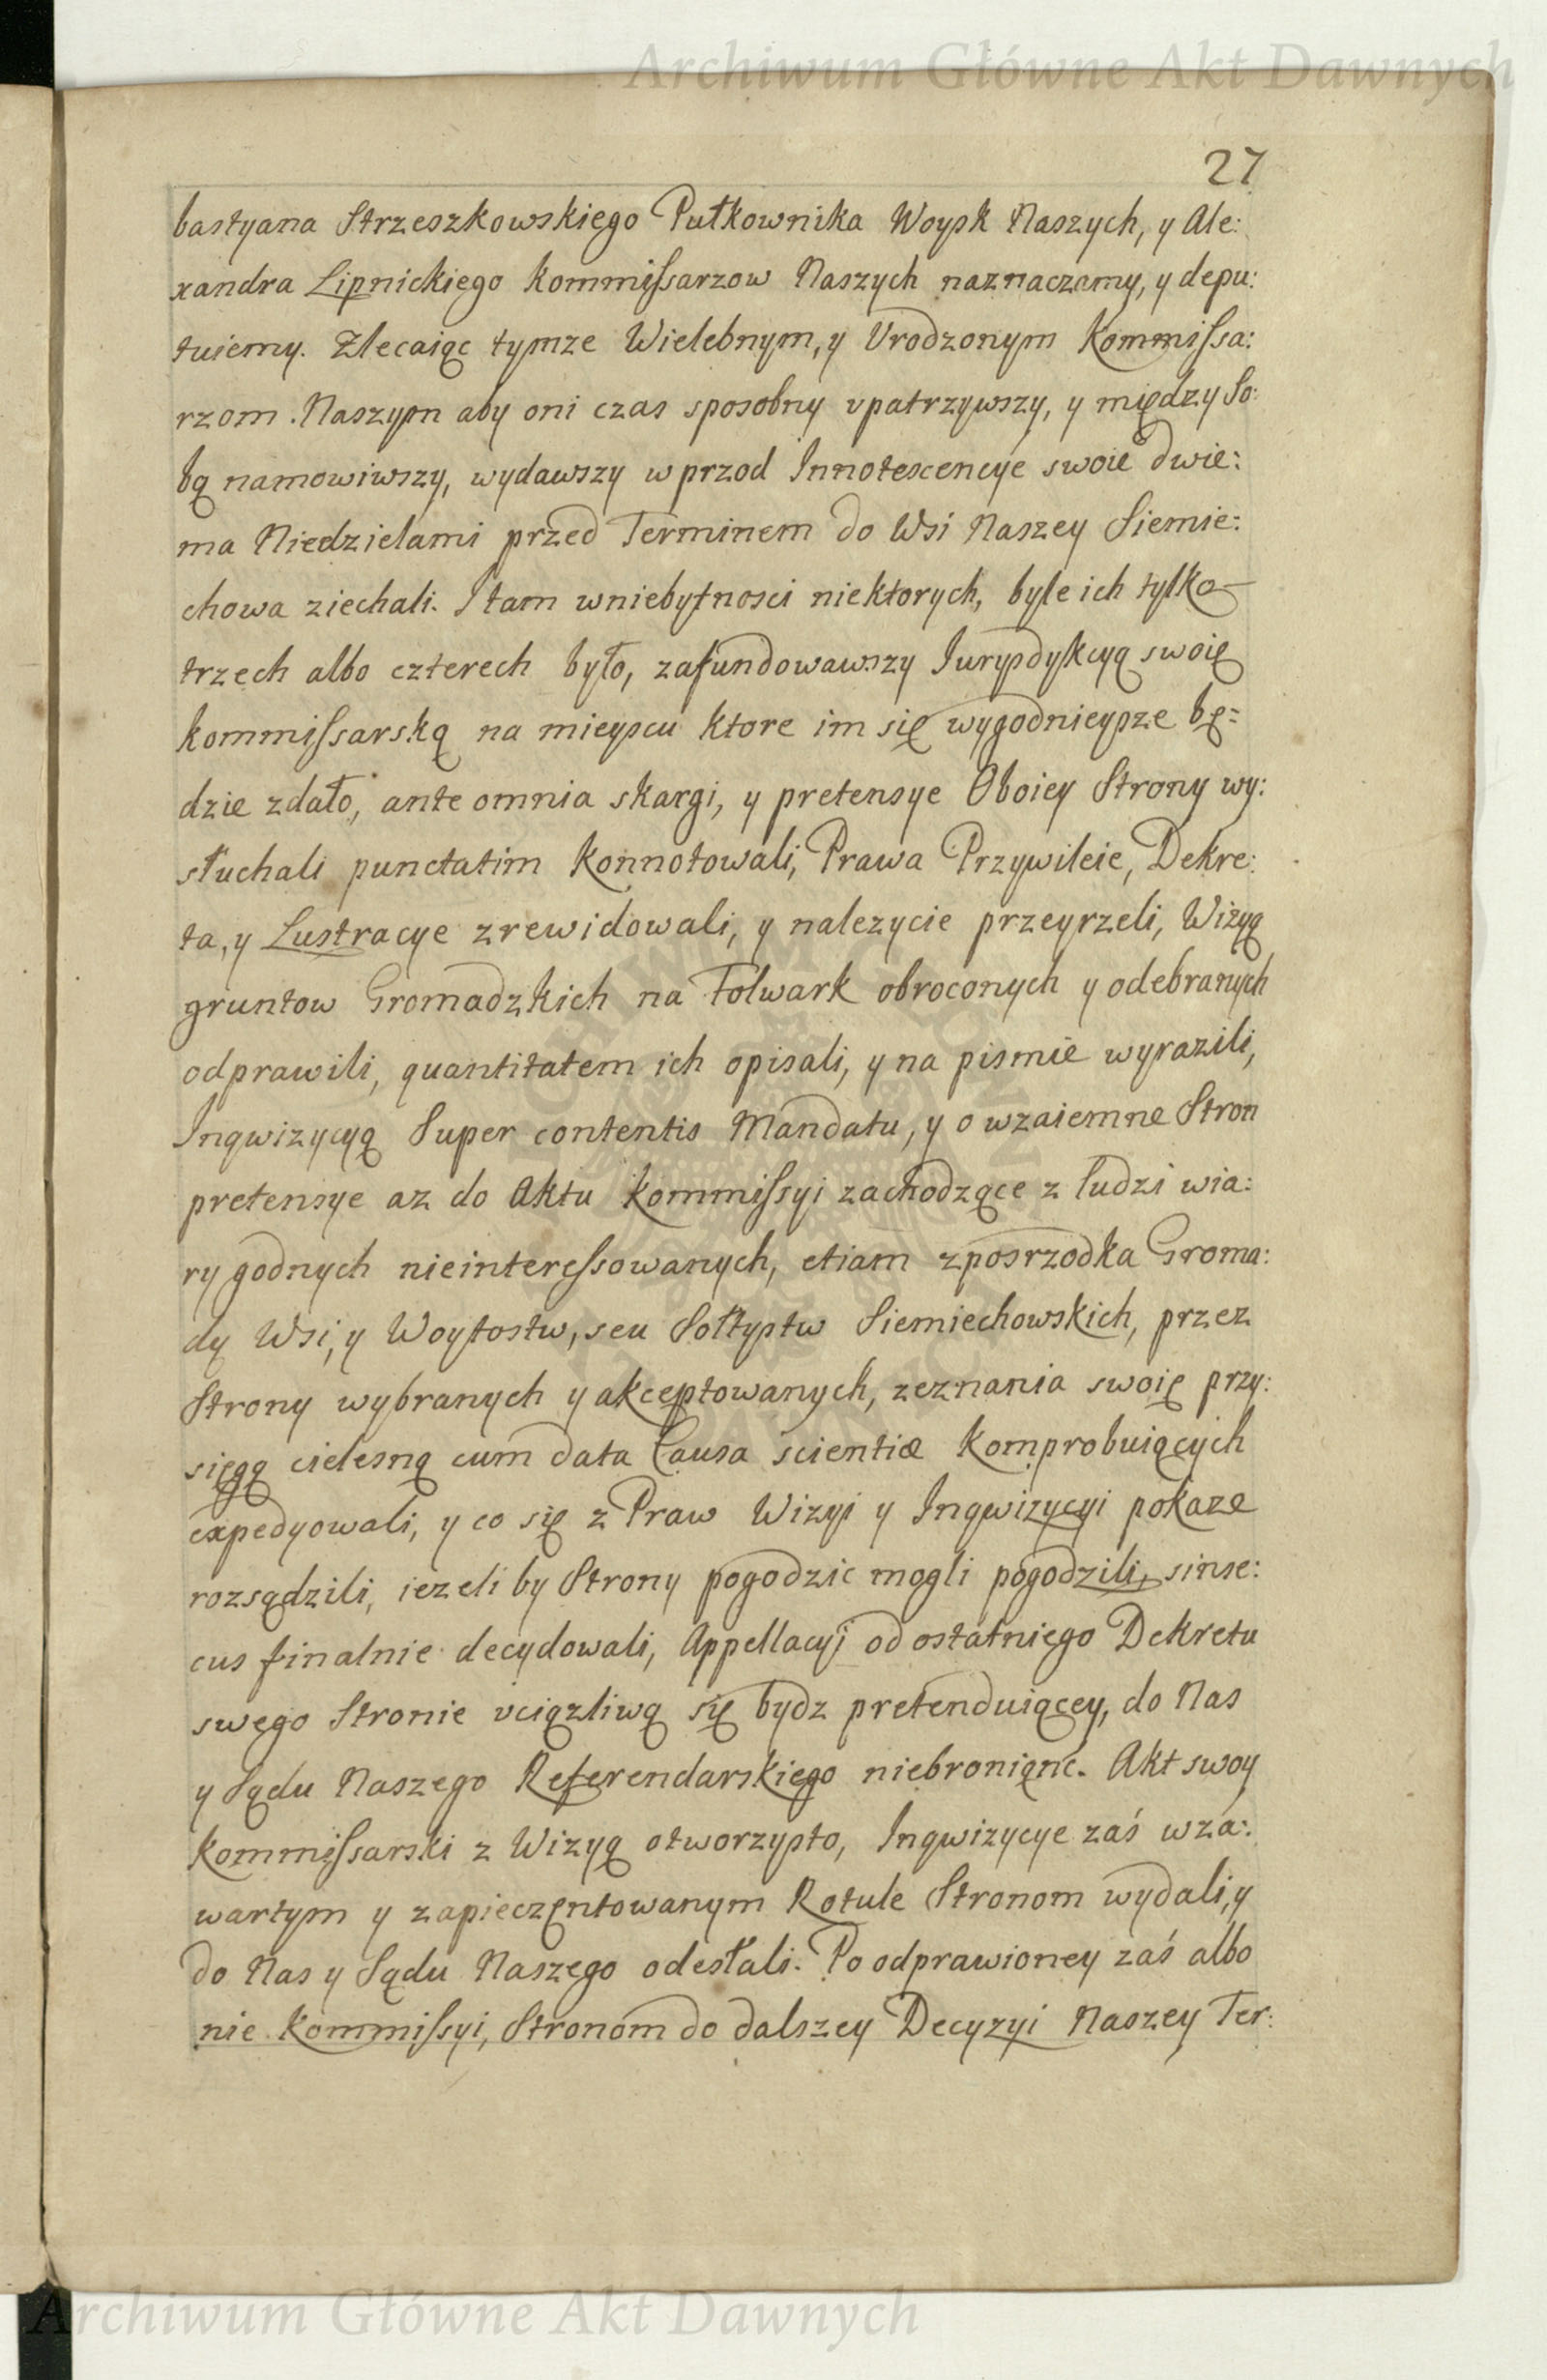 Archiwum Główne Akt Dawnych
27
bastyana Strzeszkowskiego Pułkownika Woysk Naszych, y Ale:
xandra Lipnickiego Kommissarzow Naszych naznaczamy, y depu:
tuiemy. Zlecaiąc tymze Wielebnym, y Vrodzonym Kommissa:
rzom Naszym aby oni czas sposobny vpatrzywszy, y między So:
bą namowiwszy, wydawszy wprzod Innotescencye swoie dwie:
ma Niedzielami przed Terminem do Wsi Naszey Siemie:
chowa ziechali. I tam wniebytnosci niektorych, byle ich tylko
trzech albo czterech było, zafundowawszy Iurysdykcyą swoię
kommissarską na mieyscu ktore im się wygodnieysze bę:
dzie zdało, ante omnia skargi, y pretensye Oboiey Strony wy:
słuchali punctatim Konnotowali, Prawa Przywileie, Dekre:
ta, y Lustracye zrewidowali, y nalezycie przeyrzeli, Wizyą
gruntow Gromadzkich na Folwark obroconych y odebranych
odprawili, quantitatem ich opisali, y na pismie wyrazili,
Inqwizycyą Super contentis Mandatu, y o wzaiemne Stron
pretensye az do Aktu Kommissyi zachodzące z ludzi wia:
ry godnych nieinteressowanych, etiam zposrzodka Groma:
dy Wsi, y Woytostw, seu Sołtystw Siemiechowskich, przez
Strony wybranych y akceptowanych, zeznania swoię przy:
sięgą cielesną cum data Causa scientiæ Komprobuiących
expedyowali, y co się z Praw Wizyi y Inqwizycyi pokaze
rozsądzili, iezeli by Strony pogodzic mogli pogodzili, sin se:
cus finalnie decydowali, Appellacyi od ostatniego Dekretu
swego Stronie vciązliwą się bydz pretenduiącey, do Nas
y Sądu Naszego Referendarskiego niebroniąnc. Akt swoy
Kommissarski z Wizyą otworzysto, Inqwizycye zaś wza:
wartym y zapieczęntowanym Rotule Stronom wydali, y
do Nas y Sądu Naszego odesłali. Po odprawioney zaś albo
nie Kommissyi, Stronom do dalszey Decyzyi Naszey Ter:
Archiwum Główne Akt Dawnych